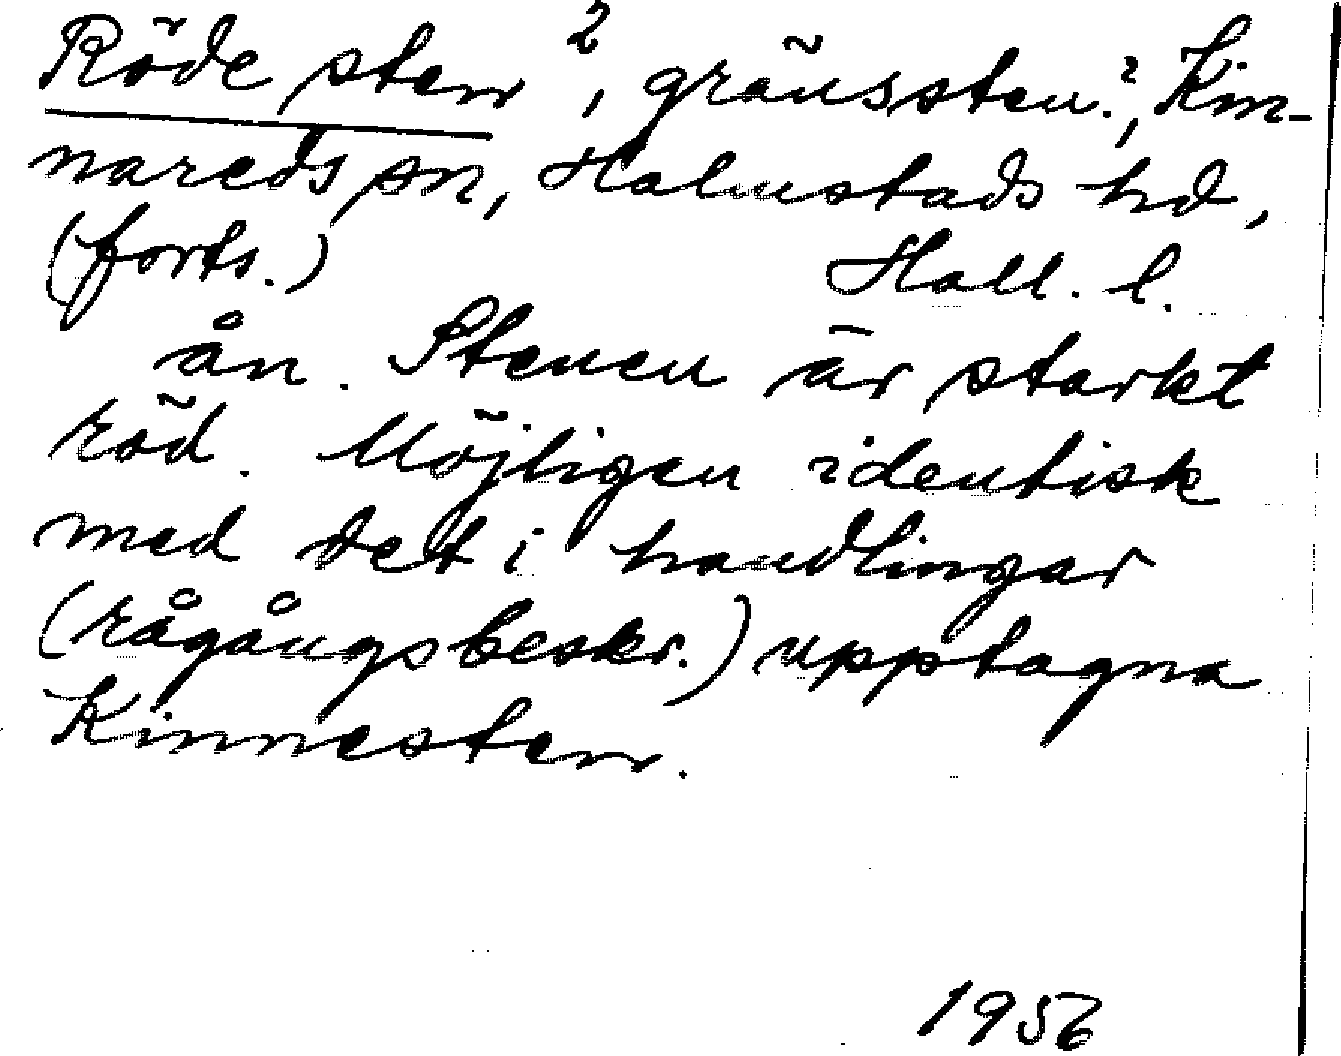 Röde sten 2, gränssten?, Kin-
nareds sn, Halmstads hd,
(forts.) Hall. l.
ån. Stenen är starkt
röd. Möjligen identisk
med det i handlingar
(rågångsbeskr.) upptagna
Kinnesten.
1956